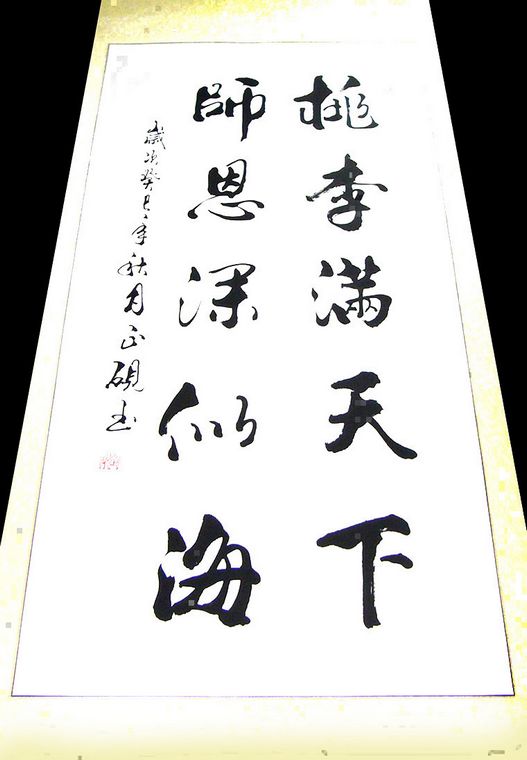 桃李满天下
師恩深似海
歲次癸巳年秋月正硯书